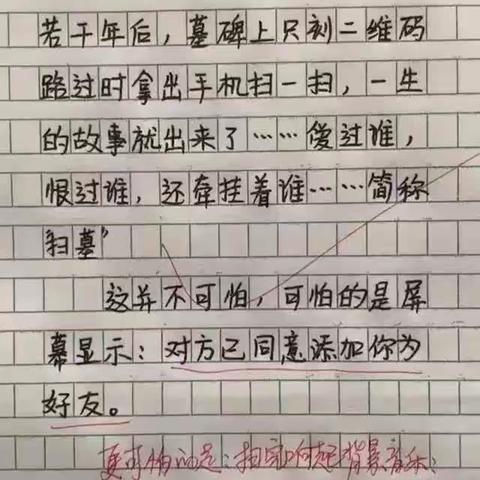 若干年后，墓碑上只刻二维码
路过时拿出手机扫一扫，一生
的故事就出来了……爱过谁，
恨过谁，还牵挂着谁……简称
"扫墓"
这并不可怕，可怕的是屏
幕显示：对方已同意添加你为
好友。
更可怕的是：扫完响起背景音乐：